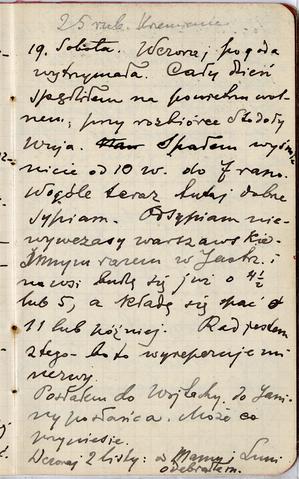 25 rub. Krzemień
19. Sobota. Wczoraj pogoda
wytrzymała. Cały dzień
spędziłem na powietrzu wol-
nem, przy rozbiórce stodoły
wuja. Spałem wyśmie-
nicie od 10 w. do 7 rano.
Wogóle teraz tutaj dobrze
sypiam. Odsypiam nie-
wywczasy warszawskie.
Innym razem w Jastrz. i
na wsi budzę się już o 4½
lub 5, a kładę się spać o
11 lub później. Rad jestem
z tego - bo to wyreperuje mi
nerwy.
Posłałem do Wojlachy, do Jani-
ny posłańca. Może co
przyniesie.
Wczoraj 2 listy: od Mamy i Luni
odebrałem.